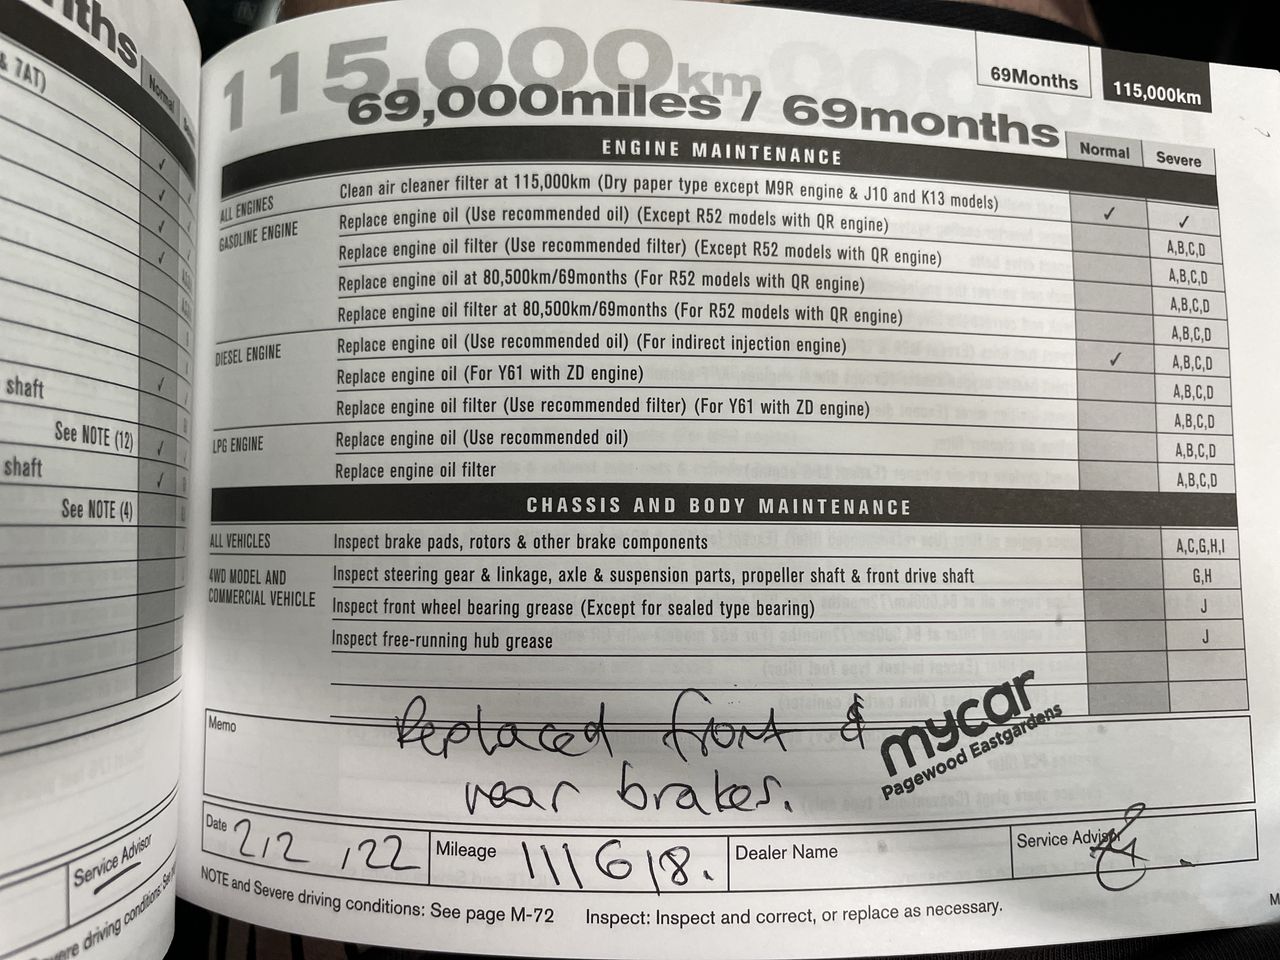 nths
& 7AT)
Normal
shaft
See NOTE (12)
shaft
See NOTE (4)
Service Advisor
115,000km
69,000miles / 69months
69Months
115,000km
Normal
Severe
ENGINE MAINTENANCE
ALL ENGINES Clean air cleaner filter at 115,000km (Dry paper type except M9R engine & J10 and K13 models) ✓ ✓
GASOLINE ENGINE Replace engine oil (Use recommended oil) (Except R52 models with QR engine) A,B,C,D
Replace engine oil filter (Use recommended filter) (Except R52 models with QR engine) A,B,C,D
Replace engine oil at 80,500km/69months (For R52 models with QR engine) A,B,C,D
Replace engine oil filter at 80,500km/69months (For R52 models with QR engine) A,B,C,D
DIESEL ENGINE Replace engine oil (Use recommended oil) (For indirect injection engine) ✓ A,B,C,D
Replace engine oil (For Y61 with ZD engine) A,B,C,D
Replace engine oil filter (Use recommended filter) (For Y61 with ZD engine) A,B,C,D
LPG ENGINE Replace engine oil (Use recommended oil) A,B,C,D
Replace engine oil filter A,B,C,D
CHASSIS AND BODY MAINTENANCE
ALL VEHICLES Inspect brake pads, rotors & other brake components A,C,G,H,I
4WD MODEL AND COMMERCIAL VEHICLE Inspect steering gear & linkage, axle & suspension parts, propeller shaft & front drive shaft G,H
Inspect front wheel bearing grease (Except for sealed type bearing) J
Inspect free-running hub grease J
Memo
Replaced front &
rear brakes.
mycar
Pagewood Eastgardens
Date 2,2,22 Mileage 111618. Dealer Name Service Advisor
NOTE and Severe driving conditions: See page M-72 Inspect: Inspect and correct, or replace as necessary.